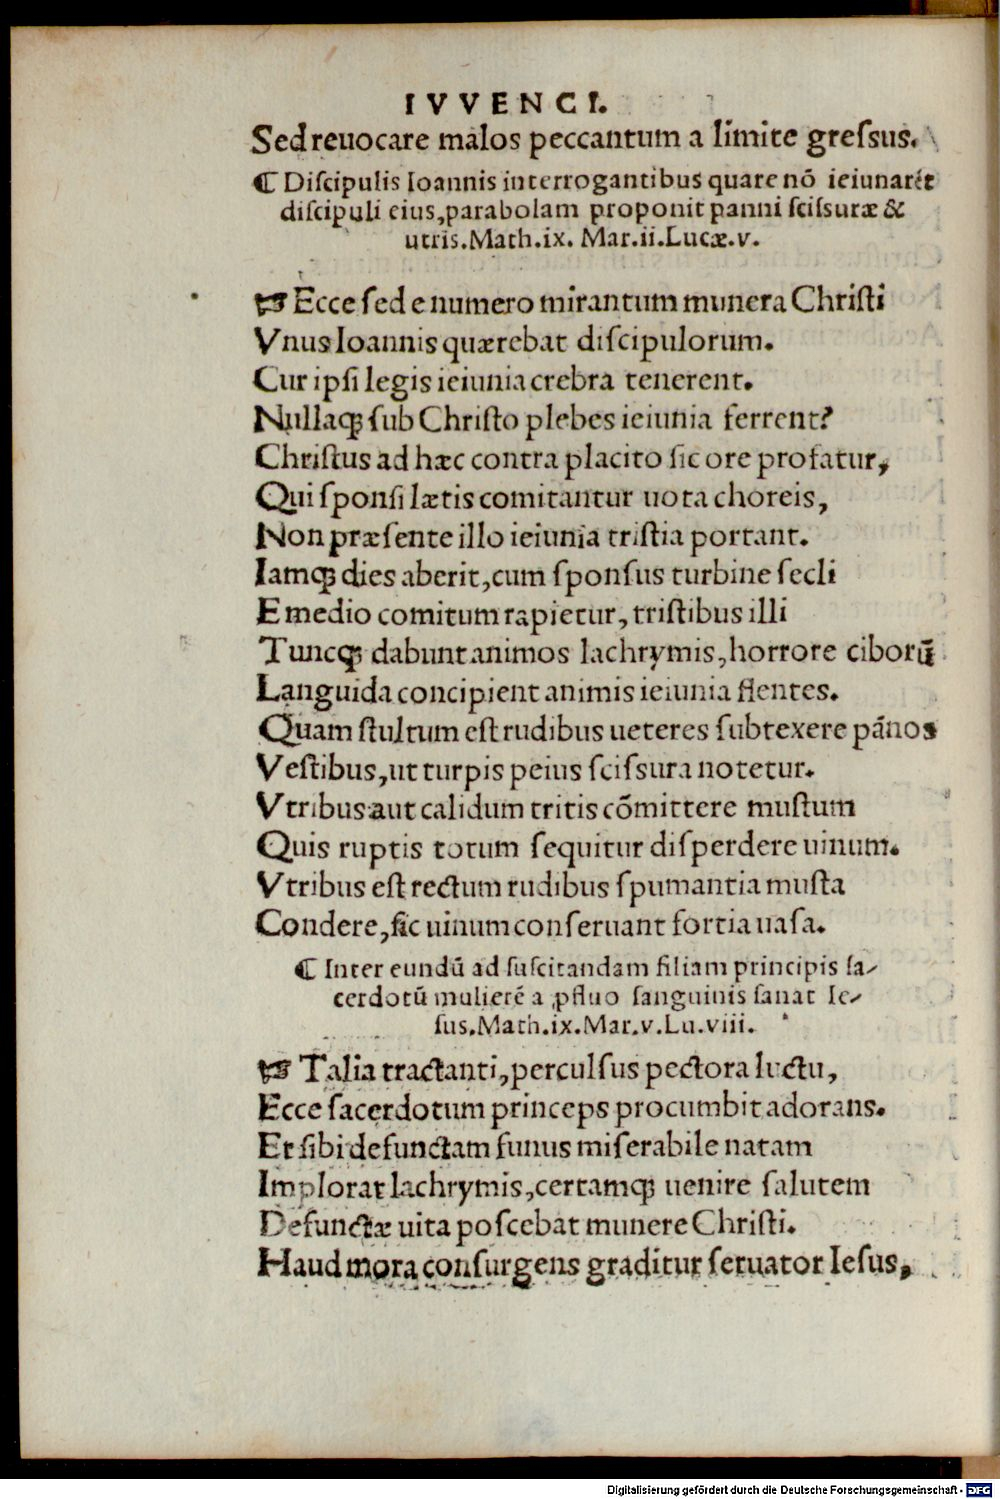 IVVENCI.
Sed reuocare malos peccantum a limite gressus.
¶ Discipulis Ioannis interrogantibus quare nō ieiunarēt
discipuli eius, parabolam proponit panni scissuræ &
utris. Math. ix. Mar. ii. Lucæ. v.
☞ Ecce sed e numero mirantum munera Christi
Vnus Ioannis quærebat discipulorum.
Cur ipsi legis ieiunia crebra tenerent.
Nullaqꝫ sub Christo plebes ieiunia ferrent?
Christus ad hæc contra placito sic ore profatur,
Qui sponsi lætis comitantur uota choreis,
Non præsente illo ieiunia tristia portant.
Iamqꝫ dies aberit, cum sponsus turbine secli
E medio comitum rapietur, tristibus illi
Tuncqꝫ dabunt animos lachrymis, horrore ciborū
Languida concipient animis ieiunia flentes.
Quam stultum est rudibus ueteres subtexere pānos
Vestibus, ut turpis peius scissura notetur.
Vtribus aut calidum tritis cōmittere mustum
Quis ruptis totum sequitur disperdere uinum.
Vtribus est rectum rudibus spumantia musta
Condere, sic uinum conseruant fortia uasa.
¶ Inter eundū ad suscitandam filiam principis sa-
cerdotū mulierē a ꝓfluo sanguinis sanat Ie-
sus. Math. ix. Mar. v. Lu. viii.
☞ Talia tractanti, perculsus pectora luctu,
Ecce sacerdotum princeps procumbit adorans.
Et sibi defunctam funus miserabile natam
Implorat lachrymis, certamqꝫ uenire salutem
Defunctæ uita poscebat munere Christi.
Haud mora consurgens graditur seruator Iesus,
Digitalisierung gefördert durch die Deutsche Forschungsgemeinschaft - DFG